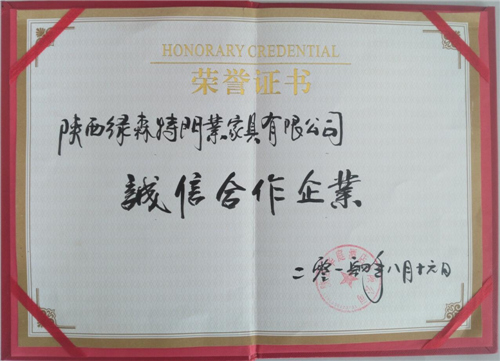 HONORARY CREDENTIAL
荣誉证书
陕西绿森特门業家具有限公司
誠信合作企業
二零一四年八月十六日